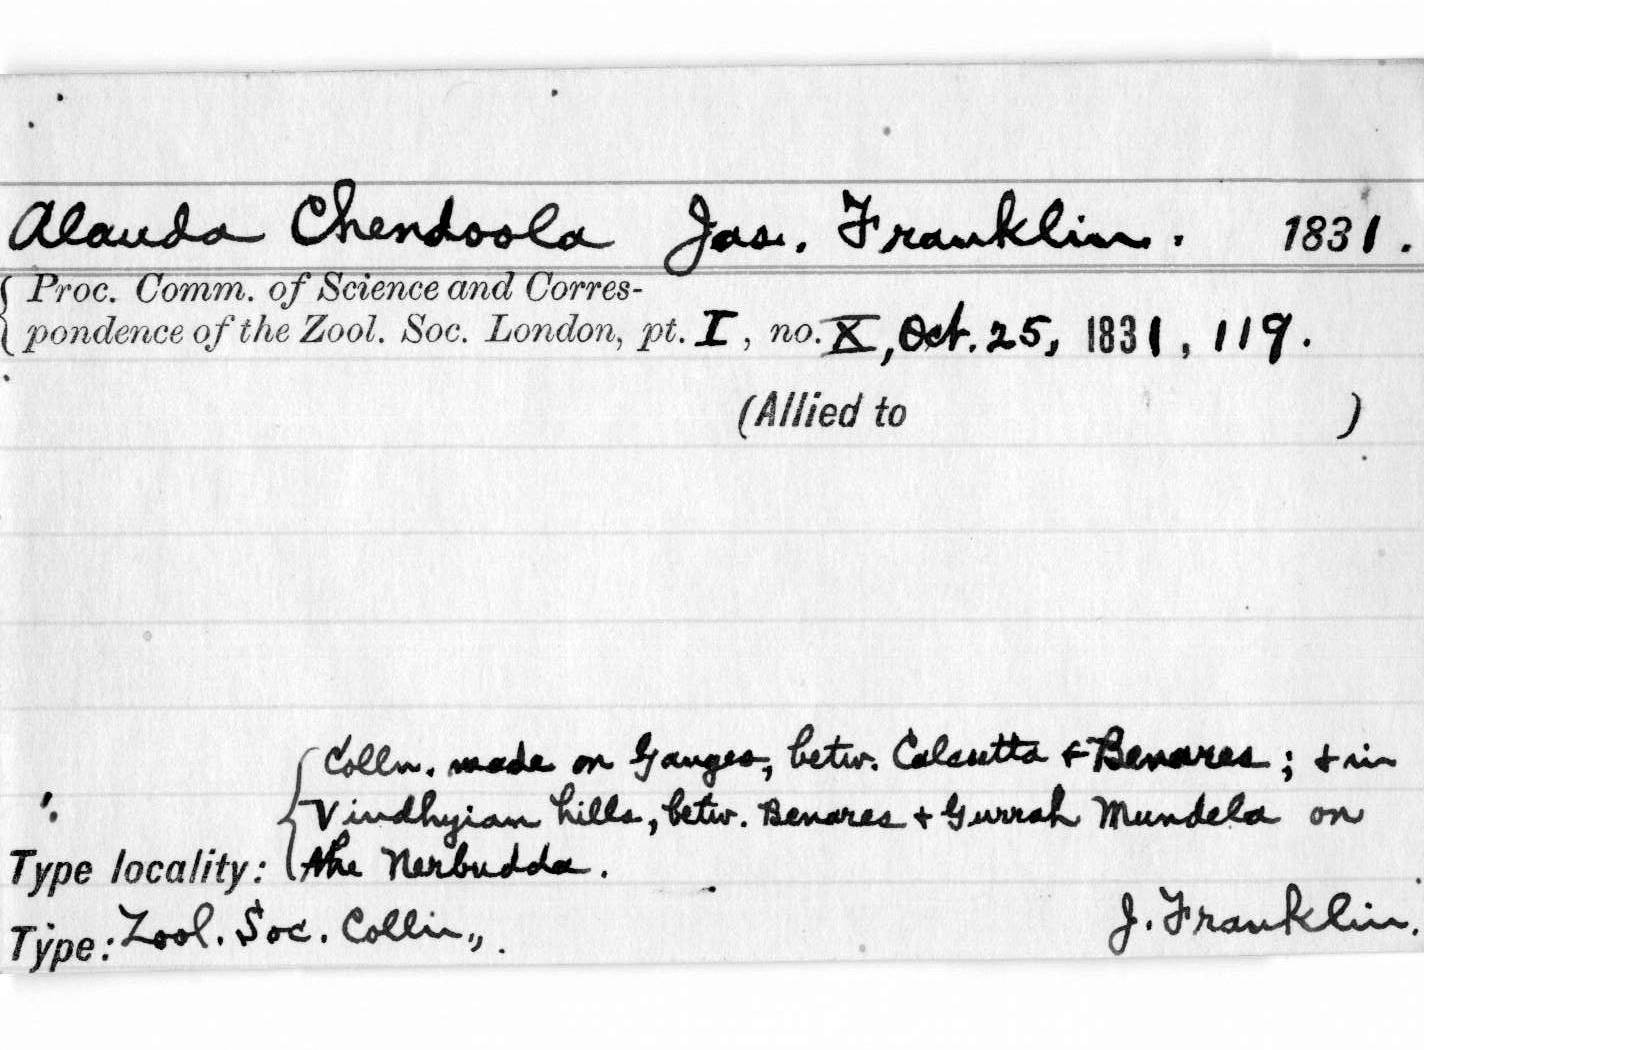 Alauda Chendoola Jas. Franklin. 1831.
Proc. Comm. of Science and Corres-
pondence of the Zool. Soc. London, pt. I, no. X, Oct. 25, 1831, 119.
(Allied to )
Colln. made on Ganges, betw. Calcutta + Benares; + in
Vindhyian hills, betw. Benares + Gurrah Mundela on
Type locality: the Nerbudda.
Type: Zool. Soc. Colln,. J. Franklin.